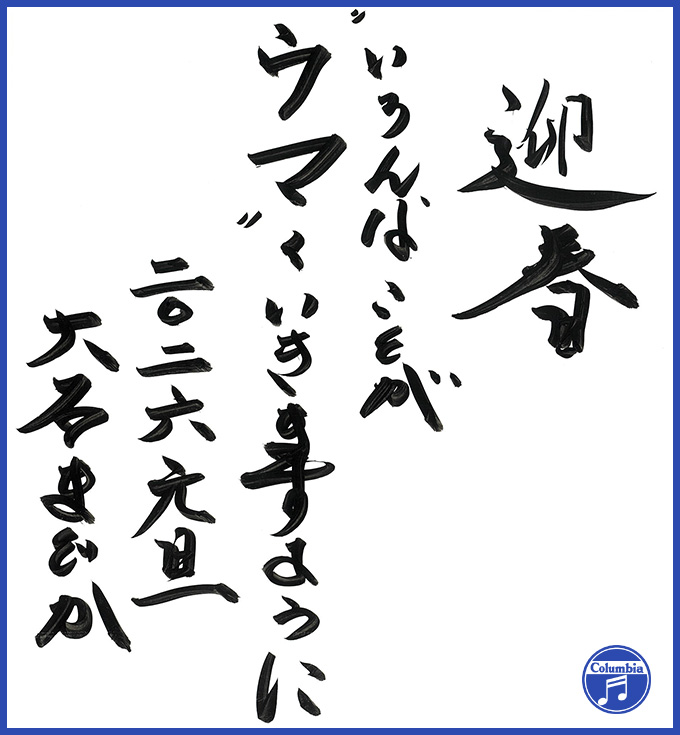 迎春
〝いろんなことが
ウマ〟くいきますように
二〇二六元旦
大石まどか
Columbia